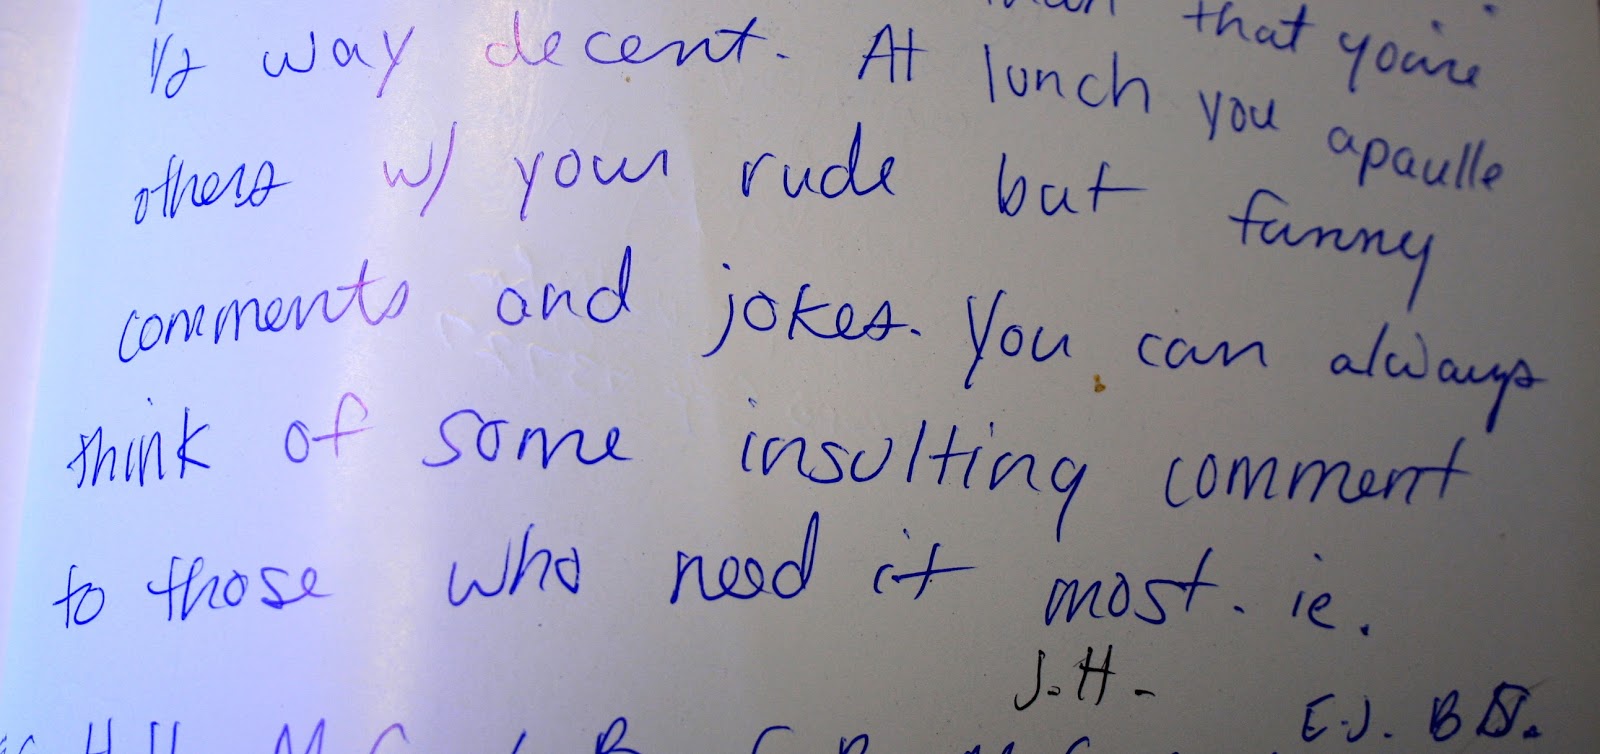 that you're
1/2 way decent. At lunch you apaulle
others w/ your rude but funny
comments and jokes. You can always
think of some insulting comment
to those who need it most. ie.
J.H.
E.J. B